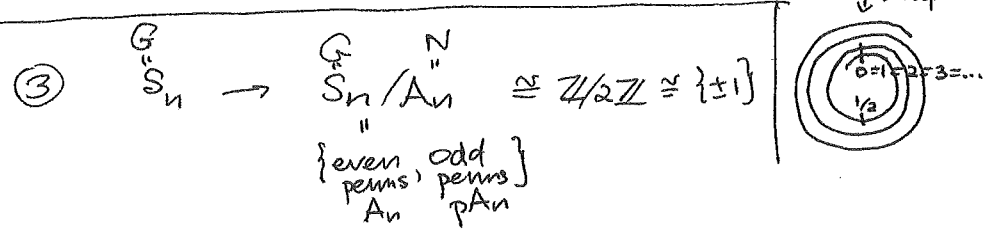 G G N
" " "
③ Sn → Sn/An ≅ ℤ/2ℤ ≅ {±1}
"
{even perms, odd perms}
An pAn
0=1=2=3=...
1/2